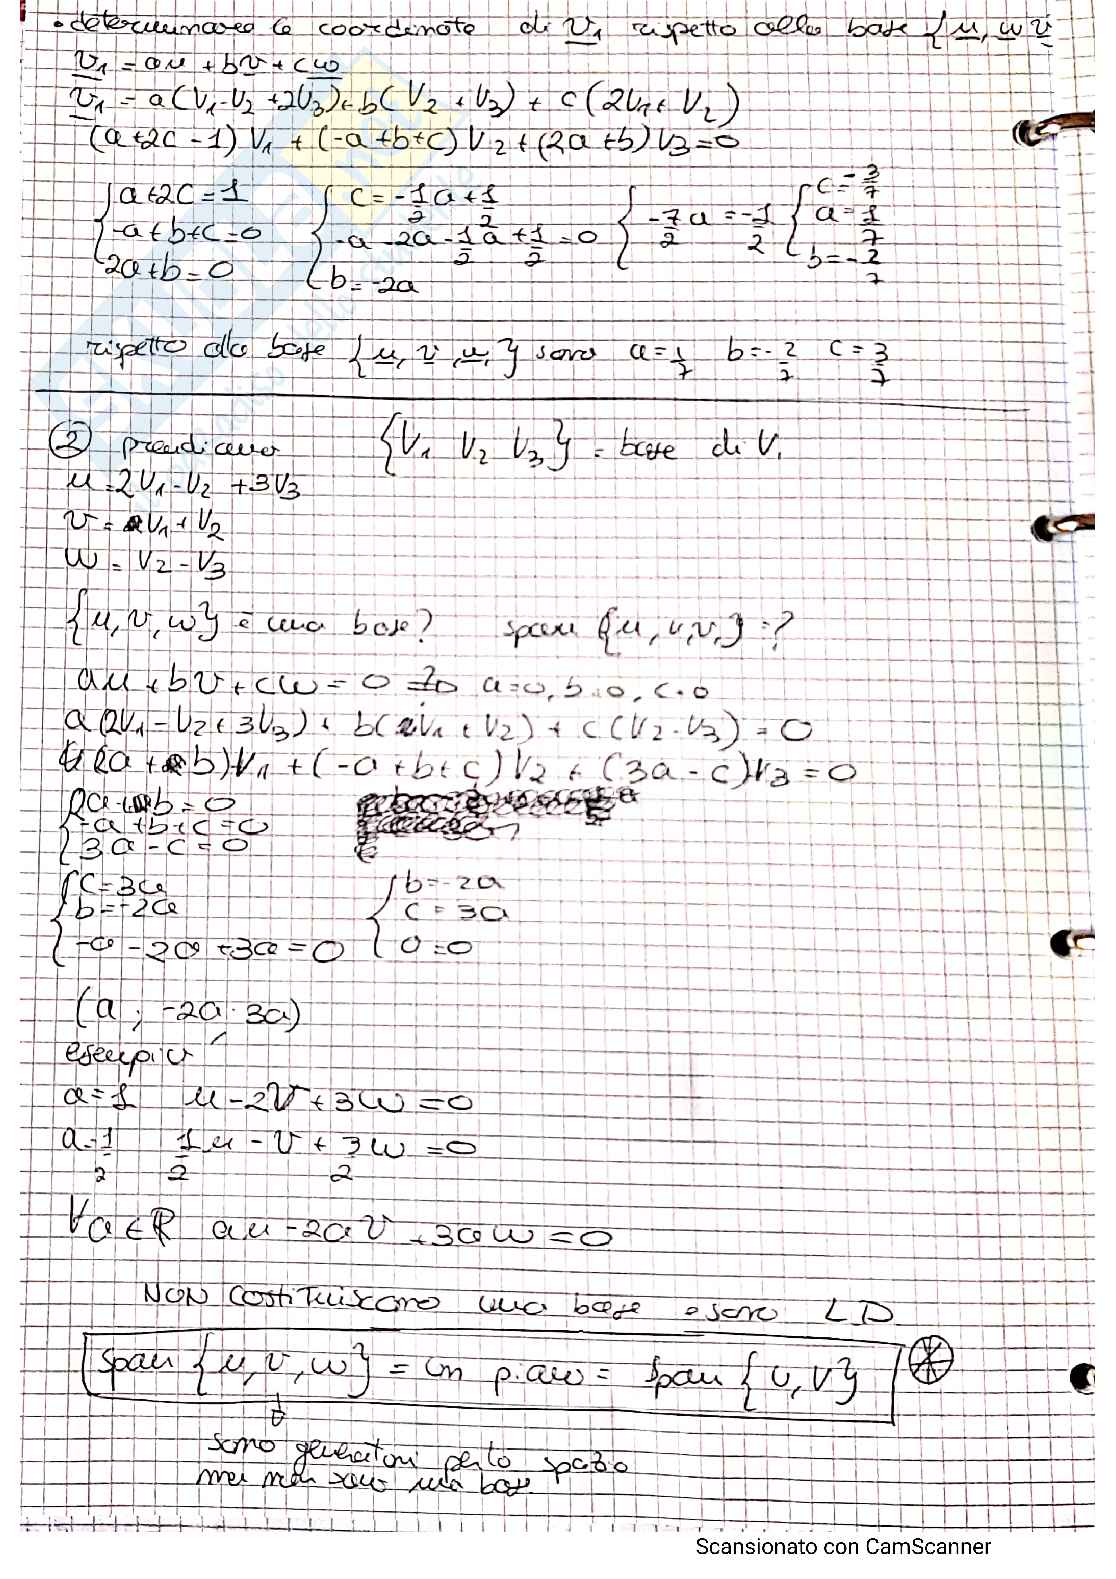 • determinare le coordinate di v1 rispetto alla base {u, w v
v1 = au + bv + cw
v1 = a(V1-V2+2V3)+b(V2+V3)+c(2V1+V2)
(a+2c-1)V1+(-a+b+c)V2+(2a+b)V3=0
{a+2c=1 {c=-1/2a+1/2 {-7/2a=-1/2 {c=-3/7
-a+b+c=0 -a-2a-1/2a+1/2=0 a=1/7
2a+b=0 b=-2a b=-2/7
rispetto alla base {u, v, w} sono a=1/7 b=-2/7 c=3/7
② prendiamo {V1 V2 V3} = base di V.
u=2V1-V2+3V3
v=V1+V2
w=V2-V3
{u, v, w} è una base? span {u, v, } =?
au+bv+cw=0 a=0, b=0, c=0
a(2V1-V2+3V3)+b(V1+V2)+c(V2-V3)=0
(2a+b)V1+(-a+b+c)V2+(3a-c)V3=0
{2a+b=0
-a+b+c=0
3a-c=0
{c=3a {b=-2a
b=-2a c=3a
-a-2a+3a=0 0=0
(a; -2a; 3a)
esempio
a=1 u-2v+3w=0
a=1/2 1/2u-v+3/2w=0
∀a∈ℝ au-2av+3aw=0
NON costituiscono una base e sono LD
span {u, v, w} = un piano = span {u, v}
sono generatori per lo spazio
ma non sono una base
Scansionato con CamScanner